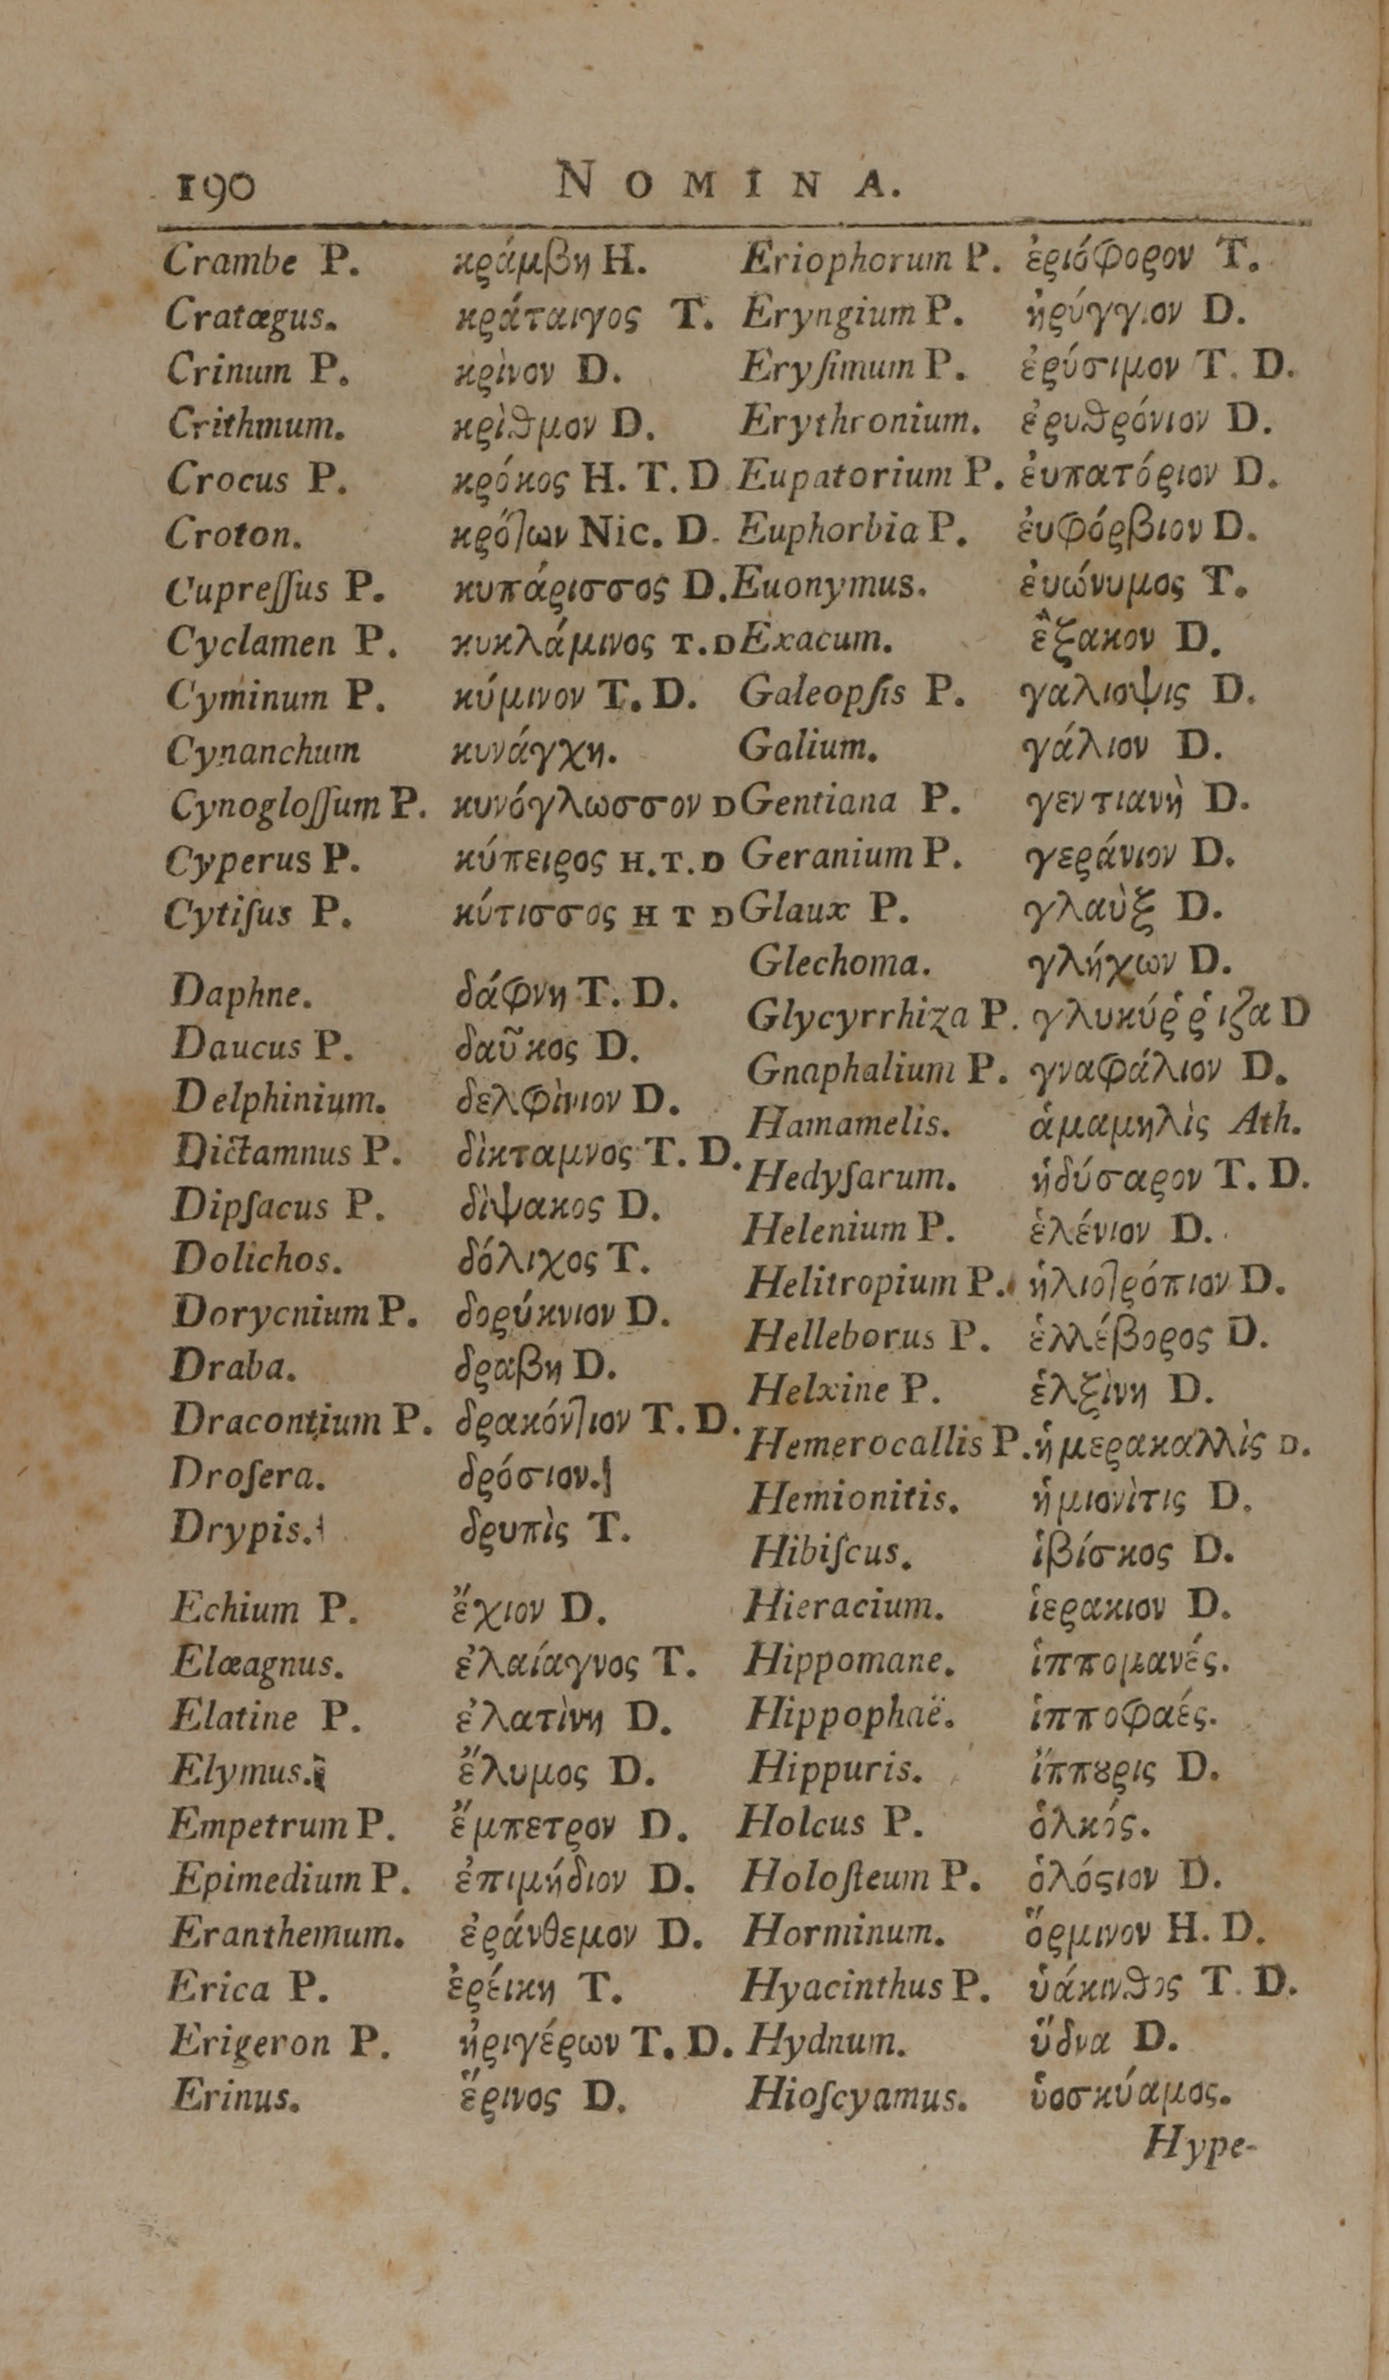 190 NOMINA.
Crambe P. κράμβη H.
Cratægus. κράταιγος T.
Crinum P. κρὶνον D.
Crithmum. κρὶϑμον D.
Crocus P. κρόκος H. T. D
Croton. κρότων Nic. D.
Cupreſſus P. κυπάρισσος D.
Cyclamen P. κυκλάμινος T. D
Cyminum P. κύμινον T. D.
Cynanchum κυνάγχη.
Cynogloſſum P. κυνόγλωσσον D
Cyperus P. κύπειρος H. T. D
Cytiſus P. κύτισσος H T D
Daphne. δάφνη T. D.
Daucus P. δαῦκος D.
Delphinium. δελφὶνιον D.
Dictamnus P. δὶκταμνος T. D.
Dipſacus P. δὶψακος D.
Dolichos. δόλιχος T.
Dorycnium P. δορύκνιον D.
Draba. δραβη D.
Dracontium P. δρακόντιον T. D.
Droſera. δρόσιον.
Drypis. δρυπὶς T.
Echium P. ἔχιον D.
Elæagnus. ἐλαίαγνος T.
Elatine P. ἐλατὶνη D.
Elymus. ἔλυμος D.
Empetrum P. ἔμπετρον D.
Epimedium P. ἐπιμήδιον D.
Eranthemum. ἐράνθεμον D.
Erica P. ἐρείκη T.
Erigeron P. ἠριγέρων T. D.
Erinus. ἔρινος D.
Eriophorum P. ἐριόφορον T.
Eryngium P. ἠρύγγιον D.
Eryſimum P. ἐρύσιμον T. D.
Erythronium. ἐρυϑρόνιον D.
Eupatorium P. ἐυπατόριον D.
Euphorbia P. ἐυφόρβιον D.
Euonymus. ἐυώνυμος T.
Exacum. ἒξακον D.
Galeopſis P. γαλιοψις D.
Galium. γάλιον D.
Gentiana P. γεντιανὴ D.
Geranium P. γεράνιον D.
Glaux P. γλαὺξ D.
Glechoma. γλήχων D.
Glycyrrhiza P. γλυκύῤῥιζα D
Gnaphalium P. γναφάλιον D.
Hamamelis. ἁμαμηλὶς Ath.
Hedyſarum. ἡδύσαρον T. D.
Helenium P. ἑλένιον D.
Helitropium P. ἡλιοτρόπιον D.
Helleborus P. ἑλλέβορος D.
Helxine P. ἑλξὶνη D.
Hemerocallis P. ἡμερακαλλὶς D.
Hemionitis. ἡμιονὶτις D.
Hibiſcus. ἱβίσκος D.
Hieracium. ἱερακιον D.
Hippomane. ἱππομανές.
Hippophaë. ἱπποφαές.
Hippuris. ἵππȣρις D.
Holcus P. ὁλκός.
Holoſteum P. ὁλόϛιον D.
Horminum. ὅρμινον H. D.
Hyacinthus P. ὑάκινϑος T. D.
Hydnum. ὕδνα D.
Hioſcyamus. ὑοσκύαμος.
Hype-